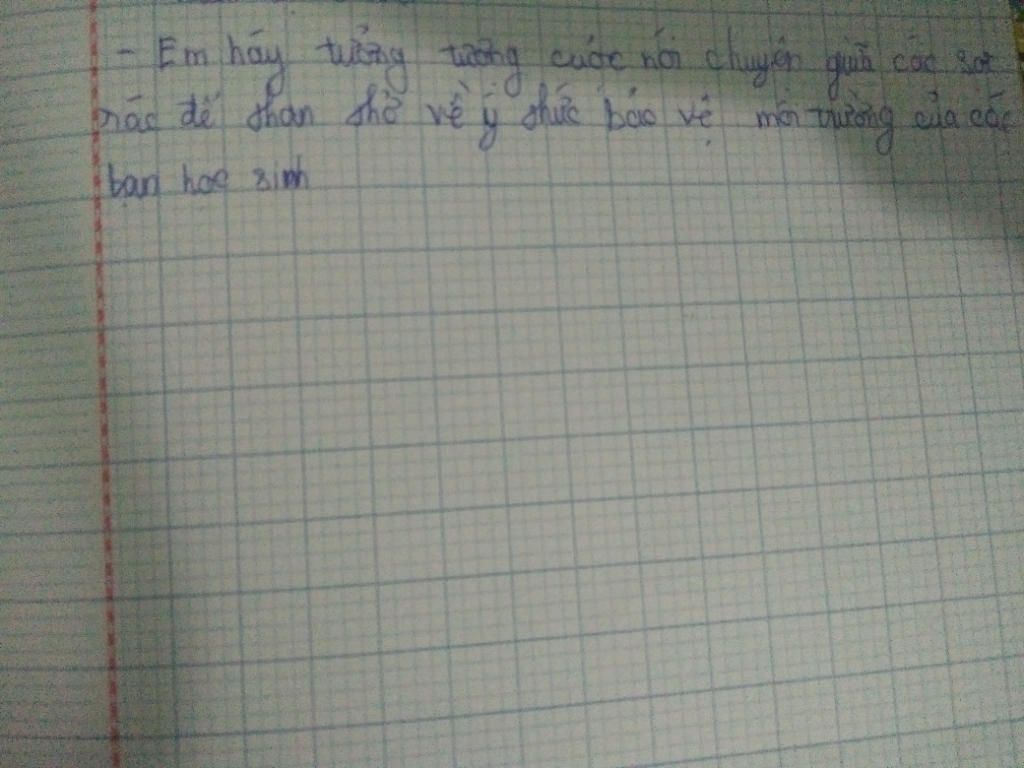 - Em hãy tưởng tượng cuộc nói chuyện giữa các sọt
rác để than thở về ý thức bảo vệ môi trường của các
bạn học sinh